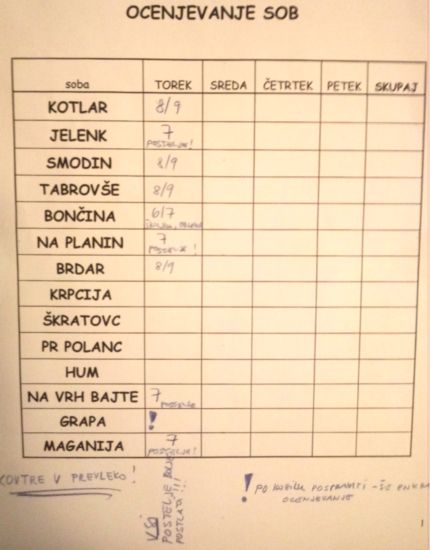 OCENJEVANJE SOB
soba TOREK SREDA ČETRTEK PETEK SKUPAJ
KOTLAR 8/9
JELENK 7
POSTELJE!
SMODIN 8/9
TABROVŠE 8/9
BONČINA 6/7
NA PLANIN 7
POSTELJE!
BRDAR 8/9
KRPCIJA
ŠKRATOVC
PR POLANC
HUM
NA VRH BAJTE 7
POSTELJE
GRAPA !
MAGANIJA 7
POSTELJE!
COUTRE V PREVLEKO!
VSI
POSTELJE BOLJE
POSTLATI!!!
! PO KOSILU POSPRAVITI - ŠE ENKRAT
OCENJEVANJE